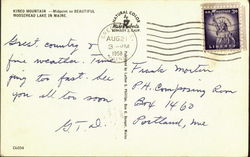 KINEO MOUNTAIN —Midpoint to BEAUTIFUL
MOOSEHEAD LAKE IN MAINE.
NATURAL COLOR
AUG 21
3 PM
1958
MAINE
LIBERTY
3¢
Great country &
fine weather. Time
going too fast. See
you all too soon
G.T.D.
Frank Morton
P.H. Composing Room
Box 1460
Portland, Me